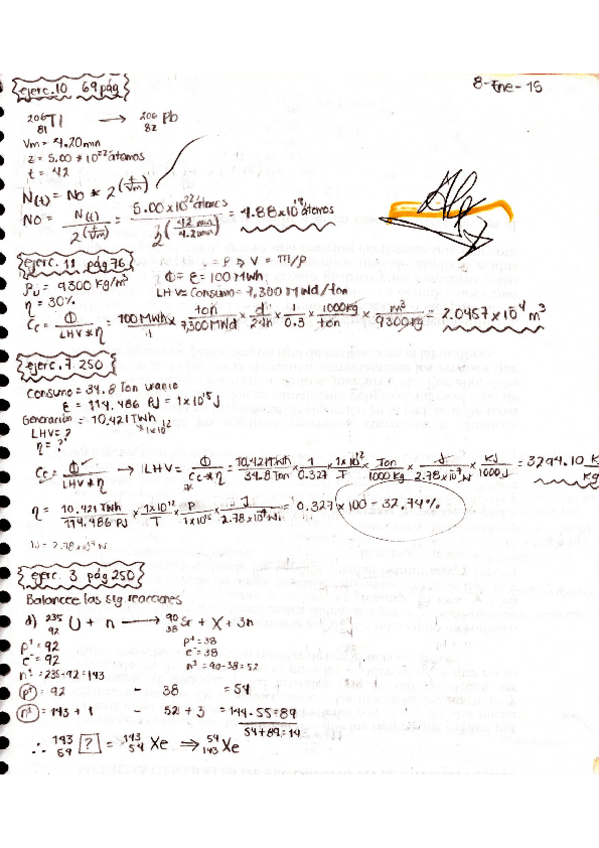 ejerc. 10 69 pág
8-Ene-15
206 81 Tl → 206 82 Pb
Vm = 4.20 min
z = 5.00 * 10²² átomos
t = 42
N(t) = No * 2^(t/Vm)
No = N(t) / 2^(t/Vm) = 5.00 x 10²² átomos / 2^(42 min / 4.2 min) = 4.88 x 10¹⁹ átomos
ejerc. 11 pág 76
= ρ ⇒ V = m/ρ
ρu = 9300 Kg/m³
Φ = E = 100 MWh
η = 30%
LHV = Consumo = 7,300 MWd/ton
Cc = Φ / LHV * η = 100 MWh / 1 x ton / 7,300 MWd x d / 24h x 1 / 0.3 x 1000 kg / ton x m³ / 9300 kg = 2.0457 x 10⁻⁴ m³
ejerc. 7. 250
Consumo = 34.8 Ton uranio
E = 114.486 PJ = 1x10¹⁵ J
Generación = 10.421 TWh
1x10¹²
LHV = ?
η = ?
Cc = Φ / LHV * η → LHV = Φ / Cc * η = 10.421 TWh / 34.8 Ton x 1 / 0.327 x 1x10¹² / T x Ton / 1000 kg x J / 2.78x10⁻⁴ W x KJ / 1000 J = 3294.10 K / Kg
η = 10.421 TWh / 114.486 PJ x 1x10¹² / T x P / 1x10¹⁵ x J / 2.78x10⁻⁴ W = 0.327 x 100 = 32.74%
ejerc. 3 pág 250
Balancee las sig. reacciones
d) 235 92 U + n → 90 38 Sr + X + 3n
p⁺ = 92 p⁺ = 38
e⁻ = 92 e⁻ = 38
n° = 235-92 = 143 n° = 90-38 = 52
(p⁺) = 92 - 38 = 54
(n°) = 143 + 1 - 52 + 3 = 144 - 55 = 89
54+89=14
∴ 143 54 [?] = 143 54 Xe ⇒ 54 143 Xe